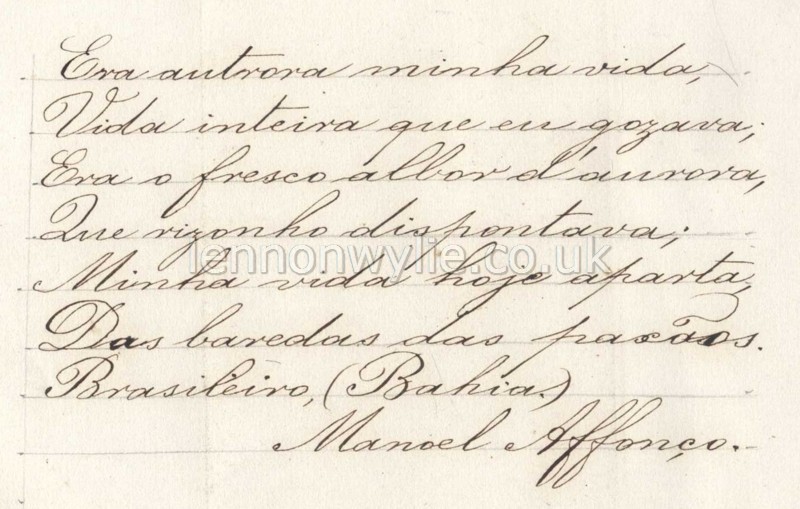 Era autrora minha vida,
Vida inteira que eu gozava;
Era o fresco albor d'aurora,
Que rizonho dispontava;
lennonwylie.co.uk
Minha vida hoje aparta,
Das baredas das
Brasileiro, (Bahia.)
Manoel Affonço.